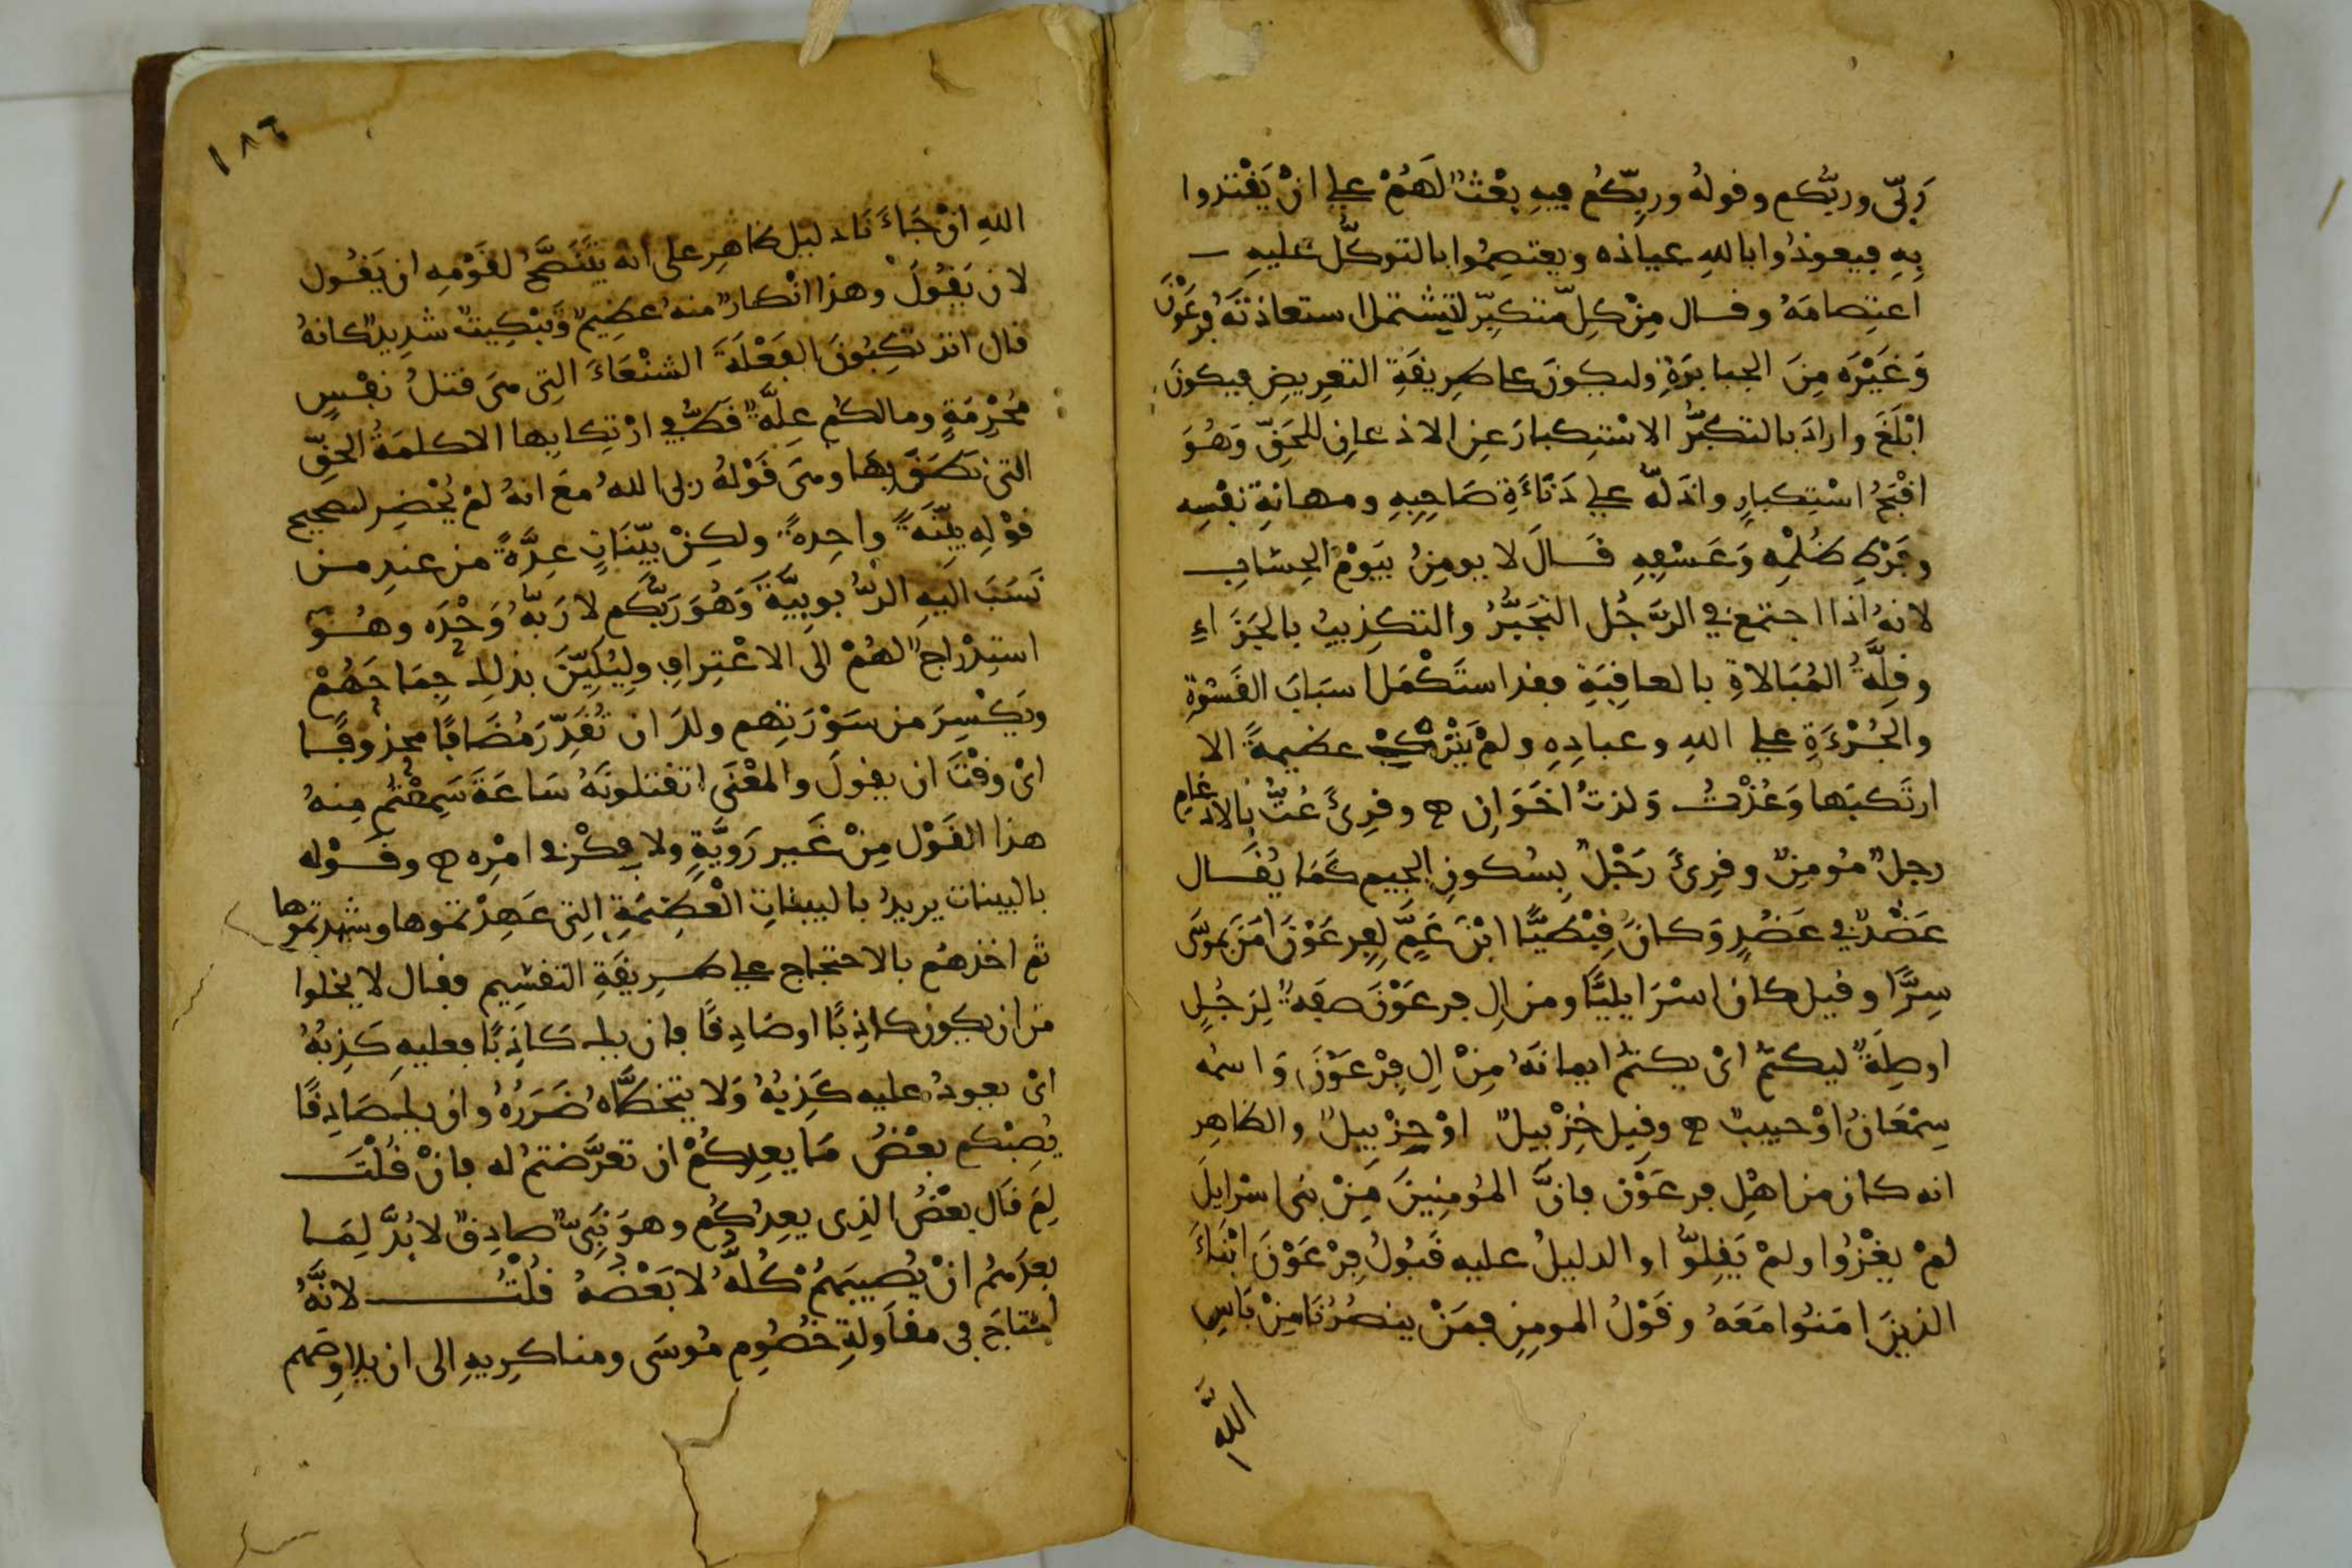 رَبِّي وربُّكم وقولهُ وربِّكُم فيهِ بَعْثٌ لَهُمْ على انْ يَقْتدوا
بِهِ فيعوذُوا باللهِ عياذه ويعتصِمُوا بالتوكُّلِ عليهِ
اعتِصامَهُ وقال مِنْ كلِّ متكبِّر لتشتمل استعاذتَهُ فِرْعَوْنَ
وَغَيْرَه مِنَ الجبابرَةِ وليكونَ على طرِيقَةِ التعرِيضِ فيكونَ
ابْلَغَ وارادَ بالتكبُّرِ الاسْتِكبارَ عنِ الاذعانِ للحَقِّ وَهُوَ
اقْبَحُ اسْتِكبارٍ وادَلّهُ على دَنَاءَةِ صَاحِبِهِ ومهانةِ نفْسِه
وفَرْطِ ظُلْمِهِ وَعَسْفِهِ قـالَ لا يومِنُ بيَوْمِ الحِسَابِ
لانهُ اذا اجتمعَ في الرَّجُل التجَبُّرُ والتكذِيبُ بالجَزَاءِ
وقِلّةُ المُبَالاةِ بالعاقِبَةِ فقد استَكْمَلَ اسبَابَ القَسْوَةِ
والجُرْءَةِ على اللهِ وعبادِهِ ولمْ يَتْرُكْ عظيمةً الا
ارتَكبَها وَعُذْتُ وَلذتُ اخَوَانِ ه وقرِئَ عُتُّ بالادغامِ
رجلٌ مُومِنٌ وقرِئَ رَجْلٌ بِسُكونِ الجيمِ كَمَا يُقـال
عَضْدٌ في عَضُدٍ وَكانَ قِبْطيًّا ابْنَ عَمٍّ لفِرعَوْنَ امَنَ بموسَى
سِرًّا وقيل كان اسْرَايليًّا ومن الِ فرعَوْنَ صفةٌ لِرَجُلٍ
اوصِلَةٌ ليكتمُ اىْ يكتمُ ايمانَهُ مِنْ الِ فِرْعَوْنَ وَاسمُه
سِمْعَانُ اوْ حبيبٌ ه وقِيل خِزْبيلٌ اوْ حِزْبيلٌ والظاهِر
انه كان من اهْلِ فرعَوْن فانَّ المُومِنِينَ مِنْ بنى اسْرايلَ
لمْ يعْزُوا ولمْ يَقِلّوا والدليلُ عليه قَوْلُ فِرْعَوْنَ ابْنَاءَ
الذينَ امَنُوا مَعَهُ وقَوْلُ المومِنِ فمَنْ ينصُرُنَا مِنْ بَاسِ
اللهِ
١٨٦
اللهِ انْ جَاءَنَا دليل ظاهِر على انه يتَنَصَّحُ لقَوْمِهِ ان يَقُول
لان يَقُولَ وهذا انْكارٌ منهُ عظِيمٌ وَتَبْكِيتٌ شدِيدٌ كانهُ
قال اترتكِبُونَ الفَعْلَةَ الشنْعَاءَ التِي هىَ قتلُ نفْسٍ
مُحْرَمَةٍ ومالكُم عِلّةٌ قطُّ في ارْتِكابِها الا كلمَةُ الحَقِّ
التى نطَقَ بِهَا وهىَ قَوْلهُ ربى اللهُ معَ انهُ لمْ يُحْضِر لتصحيح
قوْلِهِ بيِّنَةً واحِدةً ولكِنْ بيِّنَاتٍ عِدَّةً من عندِ مـن
نَسَبَ اليهِ الرّبُوبِيَّةَ وَهُوَ رَبُّكُم لا رَبّهُ وَحْدَه وهُـوَ
استِدْراجٌ لهُمْ الى الاعْتِرافِ ولِيُليِّنَ بذلك جِمَاحَهُمْ
ويَكْسِرَ من سَوْرَتِهم ولكَ ان تُقَدِّرَ مُضَافًا محذوفًـا
اىْ وقْتَ ان يقولَ والمعْنَى اتقتلونَهُ سَاعَةَ سَمِعْتُم مِنهُ
هذا القَوْل مِنْ غَيرِ رَوِيَّةٍ ولا فِكْرٍ في امْرِه ه وقـوْله
بالبينات يريدُ بالبيناتِ العَظِيمَةِ التِى عَهِدْتموها وشَهِدْتموها
ثم اخذهُم بالاحتجاج على طـرِيقَةِ التقسِيم فقـال لا يخلوا
من ان يكون كاذِبًا اوصَادِقًا فان يك كَاذِبًا فعليهِ كَذِبُهُ
اىْ يعودُ عليه كَذِبُهُ وَلا يتخطّاهُ ضَرَرُهُ وان يك صَادِقًا
يُصِبْكم بعْضُ مَا يعِدُكُمْ ان تعَرَّضتمُ له فانْ قُلْتَ
لِمَ قال بعْضُ الذِى يعِدُكُم وهوَ نَبِىٌّ صادِقٌ لا بُدَّ لِمَـا
يعِدُهُمُ انْ يُصيبَهُمْ كُلّهُ لا بَعْضُهُ قُلْتُ لانَّهُ
احتَاجَ فى مقاوَلةِ خُصُومِ مُوسَى ومناكِرِيهِ الى ان يلاوِصَهم